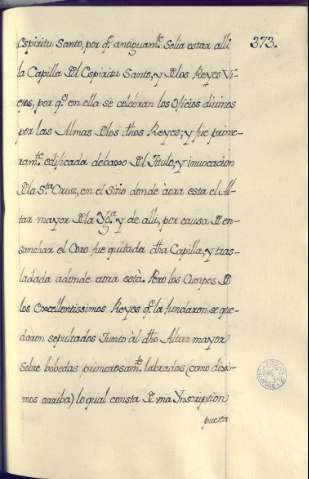 373.
Espiritu Santo, por q.e antiguam.te Solia estar alli
la Capilla del Espiritu Santo, y de los Reyes Vi-
ejos, por q.e en ella se celebran los Oficios divinos
por las Almas de los dhos Reyes; y fue prime-
ram.te edificada debaxo del Titulo, y invocacion
de la S.ta Cruz, en el Sitio donde aora esta el Al-
tar mayor de la Yg.a y de alli, por causa de en-
sanchar el Coro fue quitada dha Capilla, y tras-
ladada adonde aora està. Pero los Cuerpos de
los Excellentissimos Reyes q.e la fundaron se que-
daron sepultados Junto àl dho Altar mayor
sobre bobedas primorosam.te labradas (como dixi-
mos arriba) lo qual consta de una Inscription
puesta